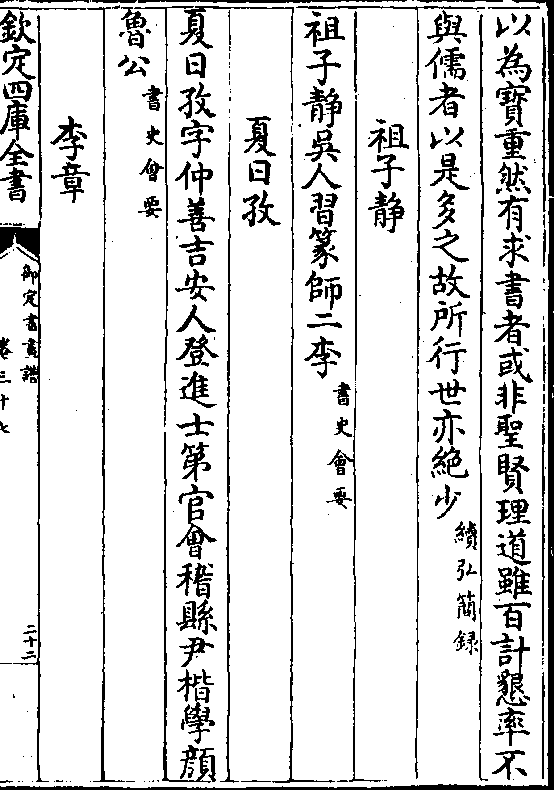 以為寶重然有求書者或非聖賢理道雖百計懇率不
與儒者以是多之故所行世亦絶少續弘簡録
祖子静
祖子静吳人習篆師二李書史會要
夏日孜
夏日孜字仲善吉安人登進士第官會稽縣尹楷學顔
魯公書史會要
李章
欽定四庫全書
御定書畫譜
卷三十七
二十二